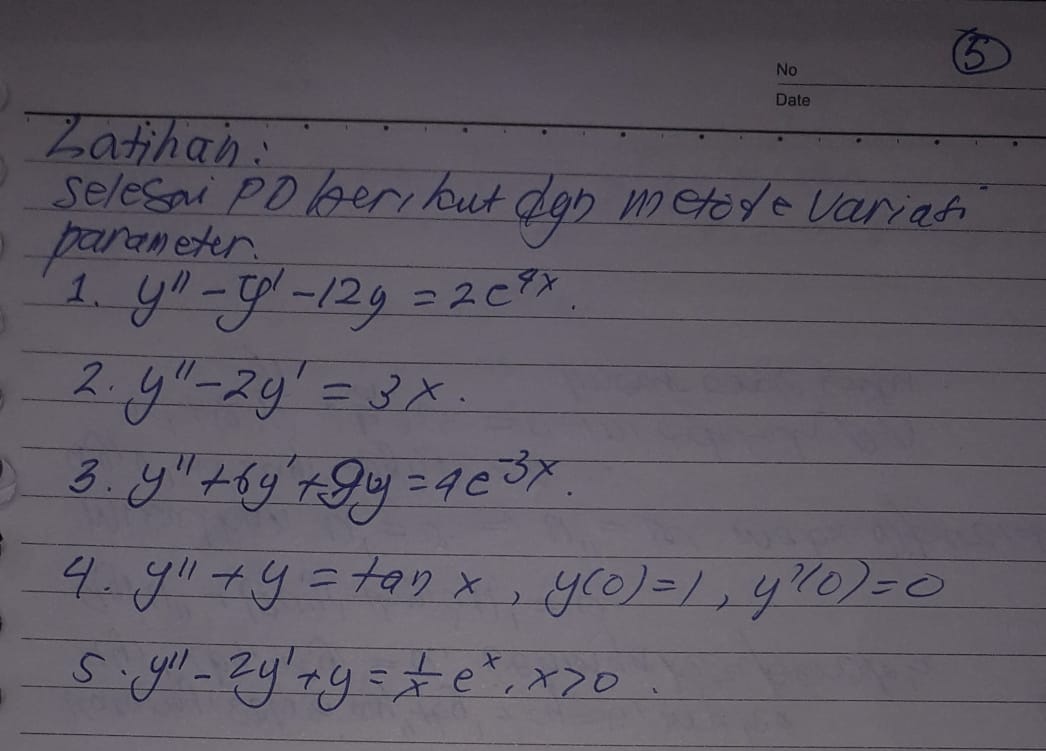 5
No
Date
Latihan:
selesai PD berikut dgn metode variasi
parameter.
1. y'' - y' - 12y = 2e^{4x}.
2. y'' - 2y' = 3x.
3. y'' + 6y' + 9y = 4e^{-3x}.
4. y'' + y = tan x, y(0)=1, y'(0)=0
5. y'' - 2y' + y = 1/x e^x, x>0.